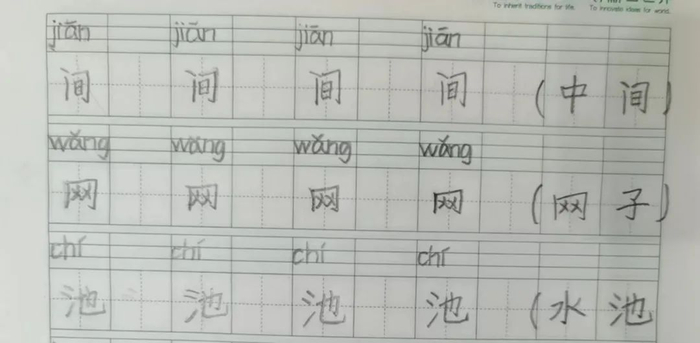 To inherit traditions for life. To innovate ideas for world.
jiān jiān jiān jiān
间 间 间 间 (中间)
wǎng wǎng wǎng wǎng
网 网 网 网 (网子)
chí chí chí chí
池 池 池 池 (水池